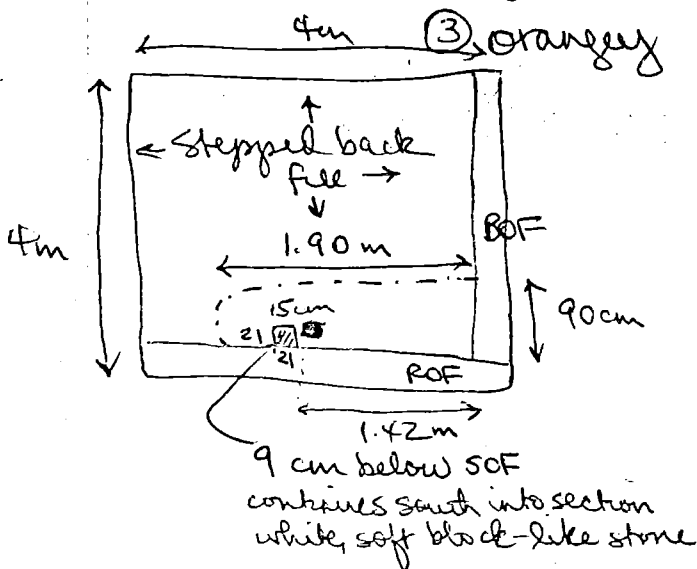 4m
③ orangey
← stepped back
fill →
4m
1.90 m
BOF
15cm
90cm
21
21
ROF
1.42m
9 cm below SOF
continues south into section
white, soft block-like stone